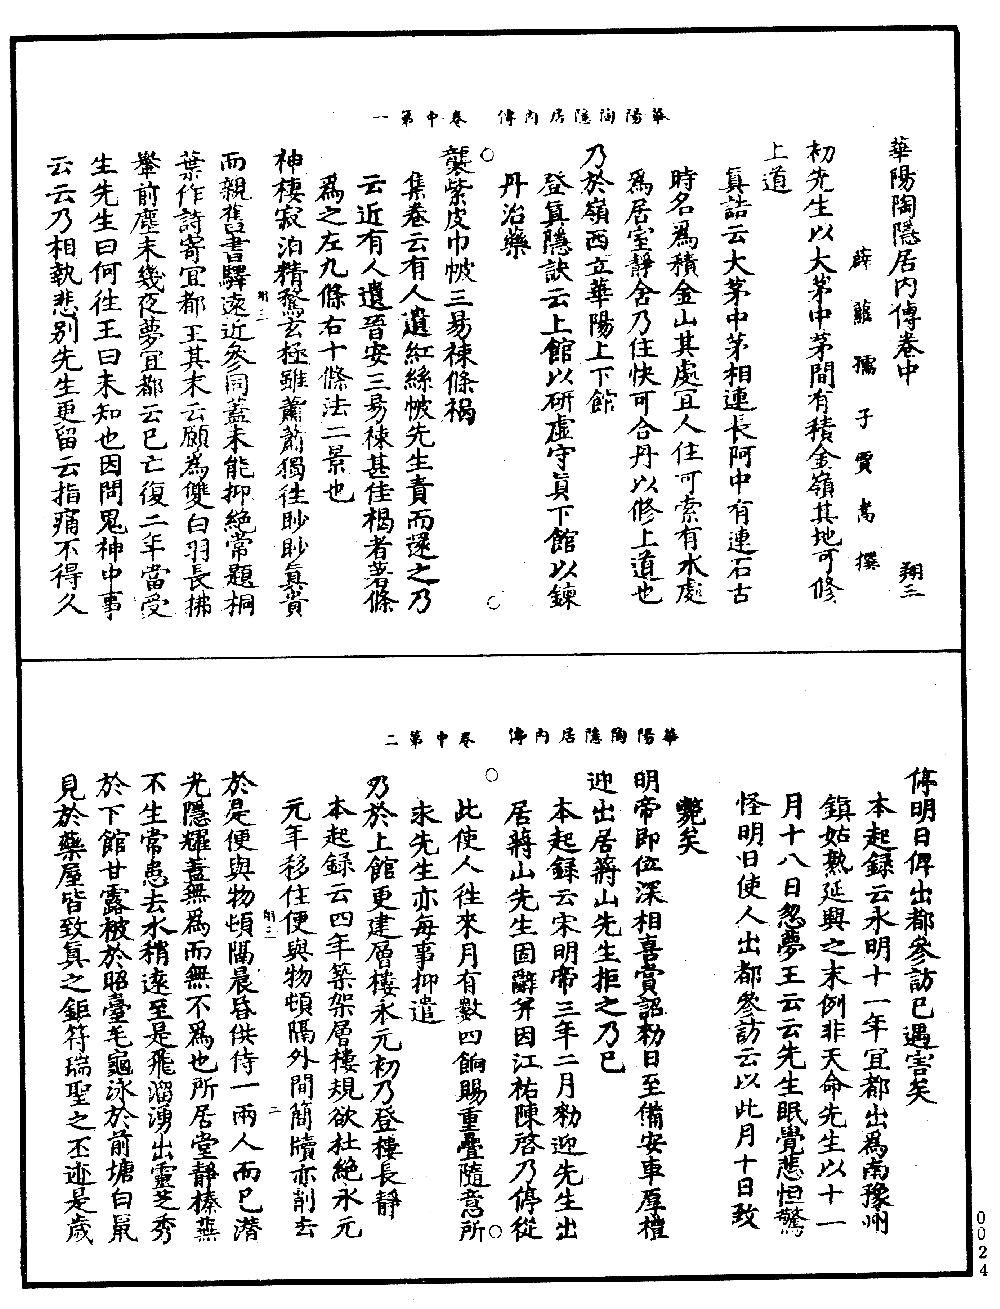 華陽陶隱居內傳　卷中第一
華陽陶隱居內傳卷中　翔三
薜蘿孺子賈嵩撰
初先生以大茅中茅間有積金嶺其地可修
上道
真誥云大茅中茅相連長阿中有連石古
時名為積金山其處宜人住可索有水處
為居室靜舍乃住快可合丹以修上道也
乃於嶺西立華陽上下館
登真隱訣云上館以研虛守真下館以鍊
丹治藥
襲紫皮巾帔三易裓條褐
集卷云有人遺紅絲帔先生責而還之乃
云近有人遺晉安三易裓甚佳褐者著條
為之左九條右十條法二景也
神棲寂泊精騖玄極雖蕭蕭獨往眇眇真賞
翔三
而親舊書驛遠近參同蓋未能抑絕常題桐
葉作詩寄宜都王其末云願為雙白羽長拂
舉前塵未幾夜夢宜都云已亡復二年當受
生先生曰何往王曰未知也因問鬼神中事
云云乃相執悲別先生更留云指痛不得久
華陽陶隱居內傳　卷中第二
停明日俾出都參訪已遇害矣
本起錄云永明十一年宜都出為南豫州
鎮姑熟延興之末例非天命先生以十一
月十八日忽夢王云云先生眠覺悲怛驚
怪明日使人出都參訪云以此月十日致
斃矣
明帝即位深相喜賞詔勑日至備安車厚禮
迎出居蔣山先生拒之乃已
本起錄云宋明帝三年二月勑迎先生出
居蔣山先生固辭并因江祏陳啓乃停從
此使人往來月有數四餉賜重疊隨意所
求先生亦每事抑遣
乃於上館更建層樓永元初乃登樓長靜
本起錄云四年築架層樓規欲杜絕永元
元年移住便與物頓隔外間簡牘亦削去
於是便與物頓隔晨昏供侍一兩人而已潛
翔三　二
光隱耀蓋無為而無不為也所居堂靜榛蕪
不生常患去水稍遠至是飛溜湧出靈芝秀
於下館甘露被於昭臺毛龜泳於前塘白鼠
見於藥屋皆致真之鉅符瑞聖之丕迹是歲
0024